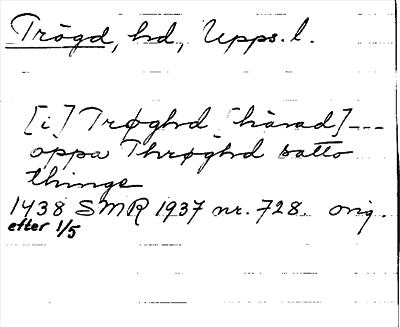 Trögd, hd, Upps. l.
[i] Trøghd [härad] ---
oppa Thrøghd satto
things
1438 SMR 1937 nr. 728. orig.
efter 1/5